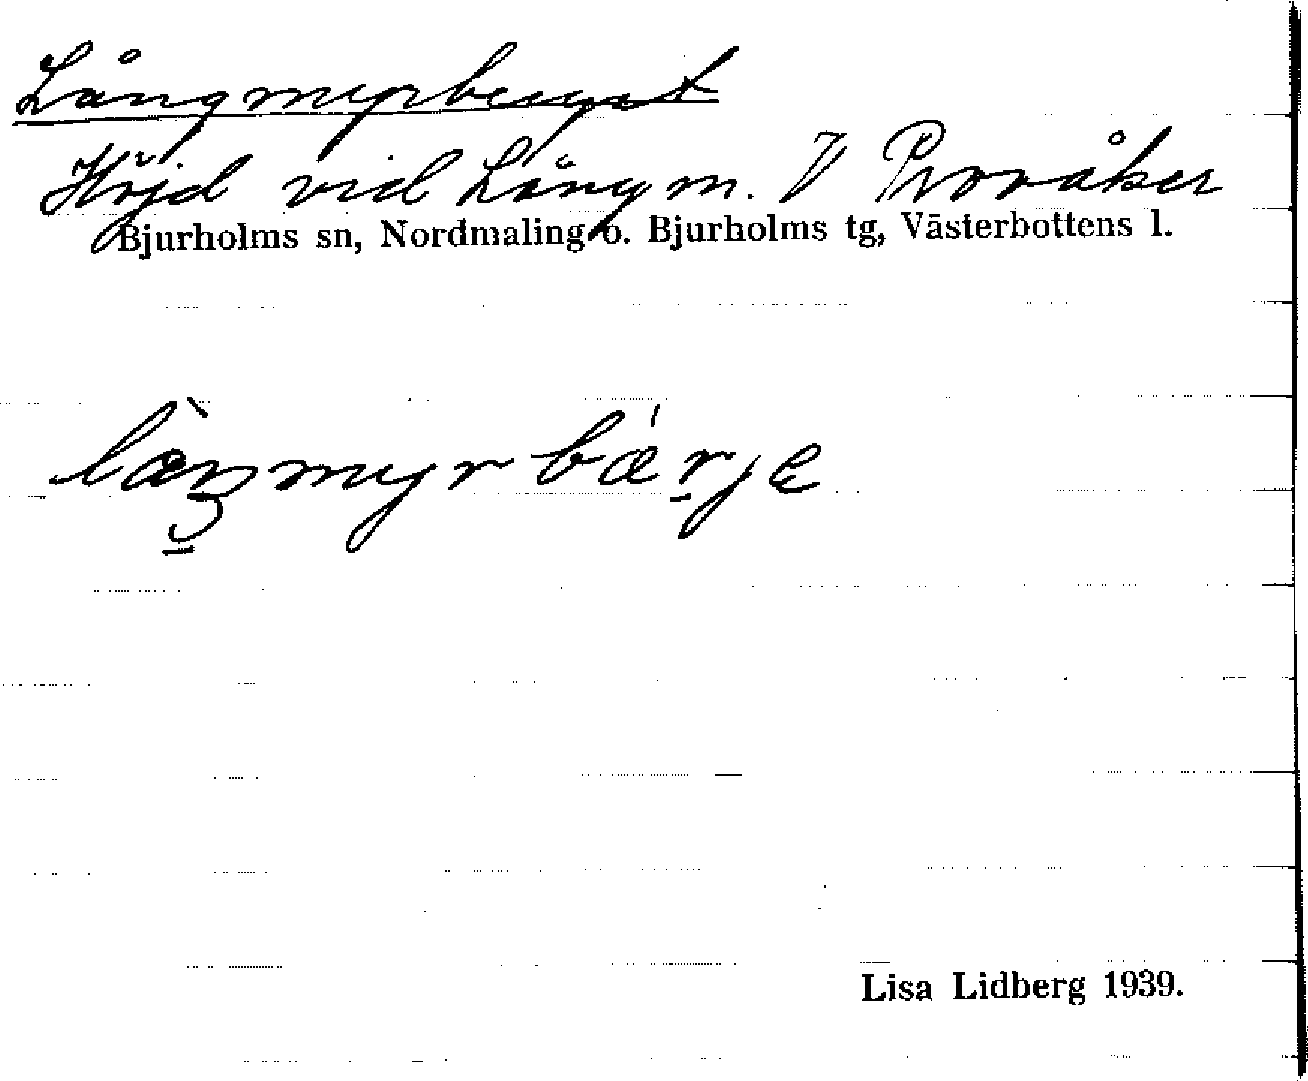 Långmyrberget
Höjd vid Långm. V Provåker
Bjurholms sn, Nordmaling o. Bjurholms tg, Västerbottens l.
Lisa Lidberg 1939.